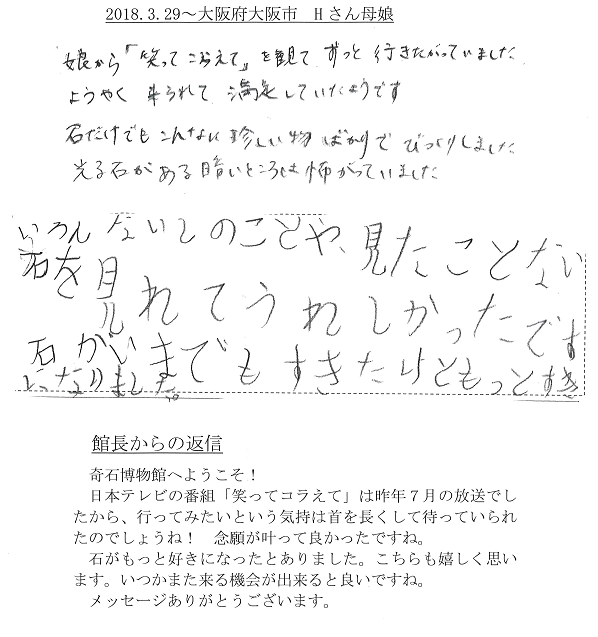 2018.3.29～大阪府大阪市　Hさん母娘
娘から「笑ってこらえて」を観て ずっと 行きたがっていました
ようやく 来られて 満足していたようです
石だけでも こんなに 珍しい物 ばかりで びっくりしました
光る石がある暗いところは怖がっていました
いろんないしのことや、見たことない
石を見れてうれしかったです
石がいままでもすきたけともっとすき
になりました。
館長からの返信
奇石博物館へようこそ！
日本テレビの番組「笑ってコラえて」は昨年７月の放送でし
たから、行ってみたいという気持は首を長くして待っていられ
たのでしょうね！　念願が叶って良かったですね。
石がもっと好きになったとありました。こちらも嬉しく思い
ます。いつかまた来る機会が出来ると良いですね。
メッセージありがとうございます。